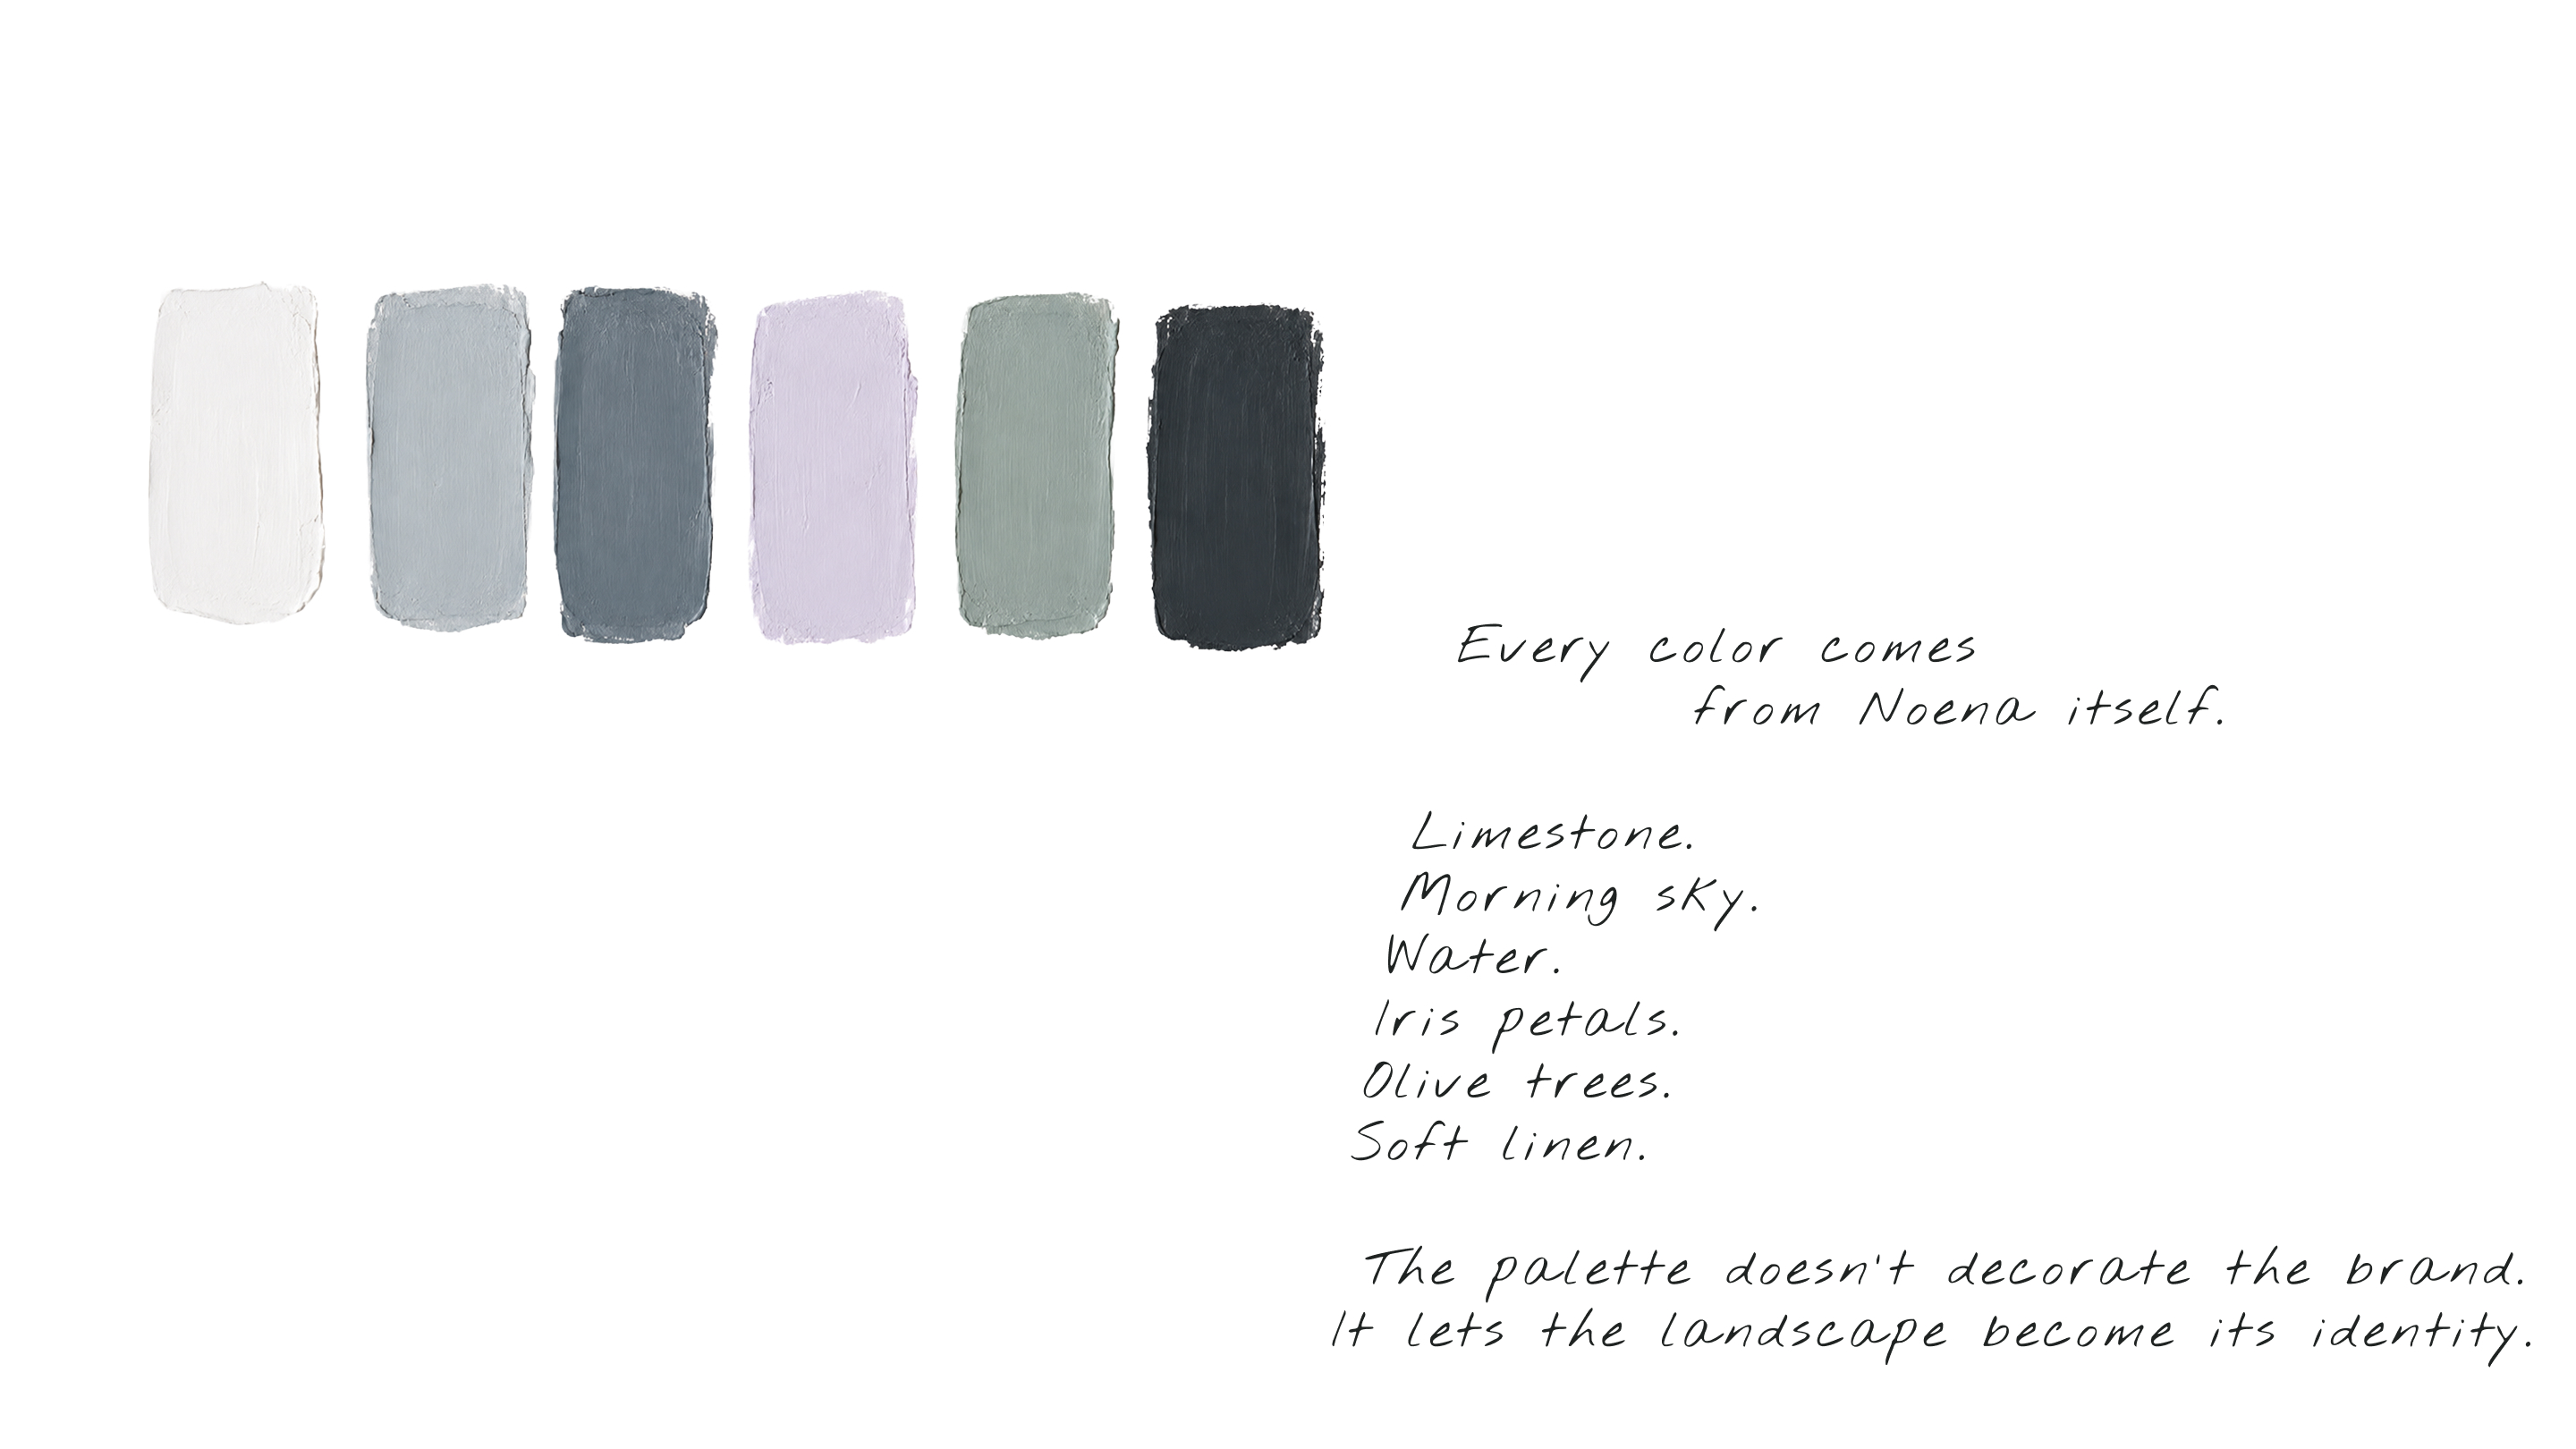 Every color comes
from Noena itself.
Limestone.
Morning sky.
Water.
Iris petals.
Olive trees.
Soft linen.
The palette doesn't decorate the brand.
It lets the landscape become its identity.